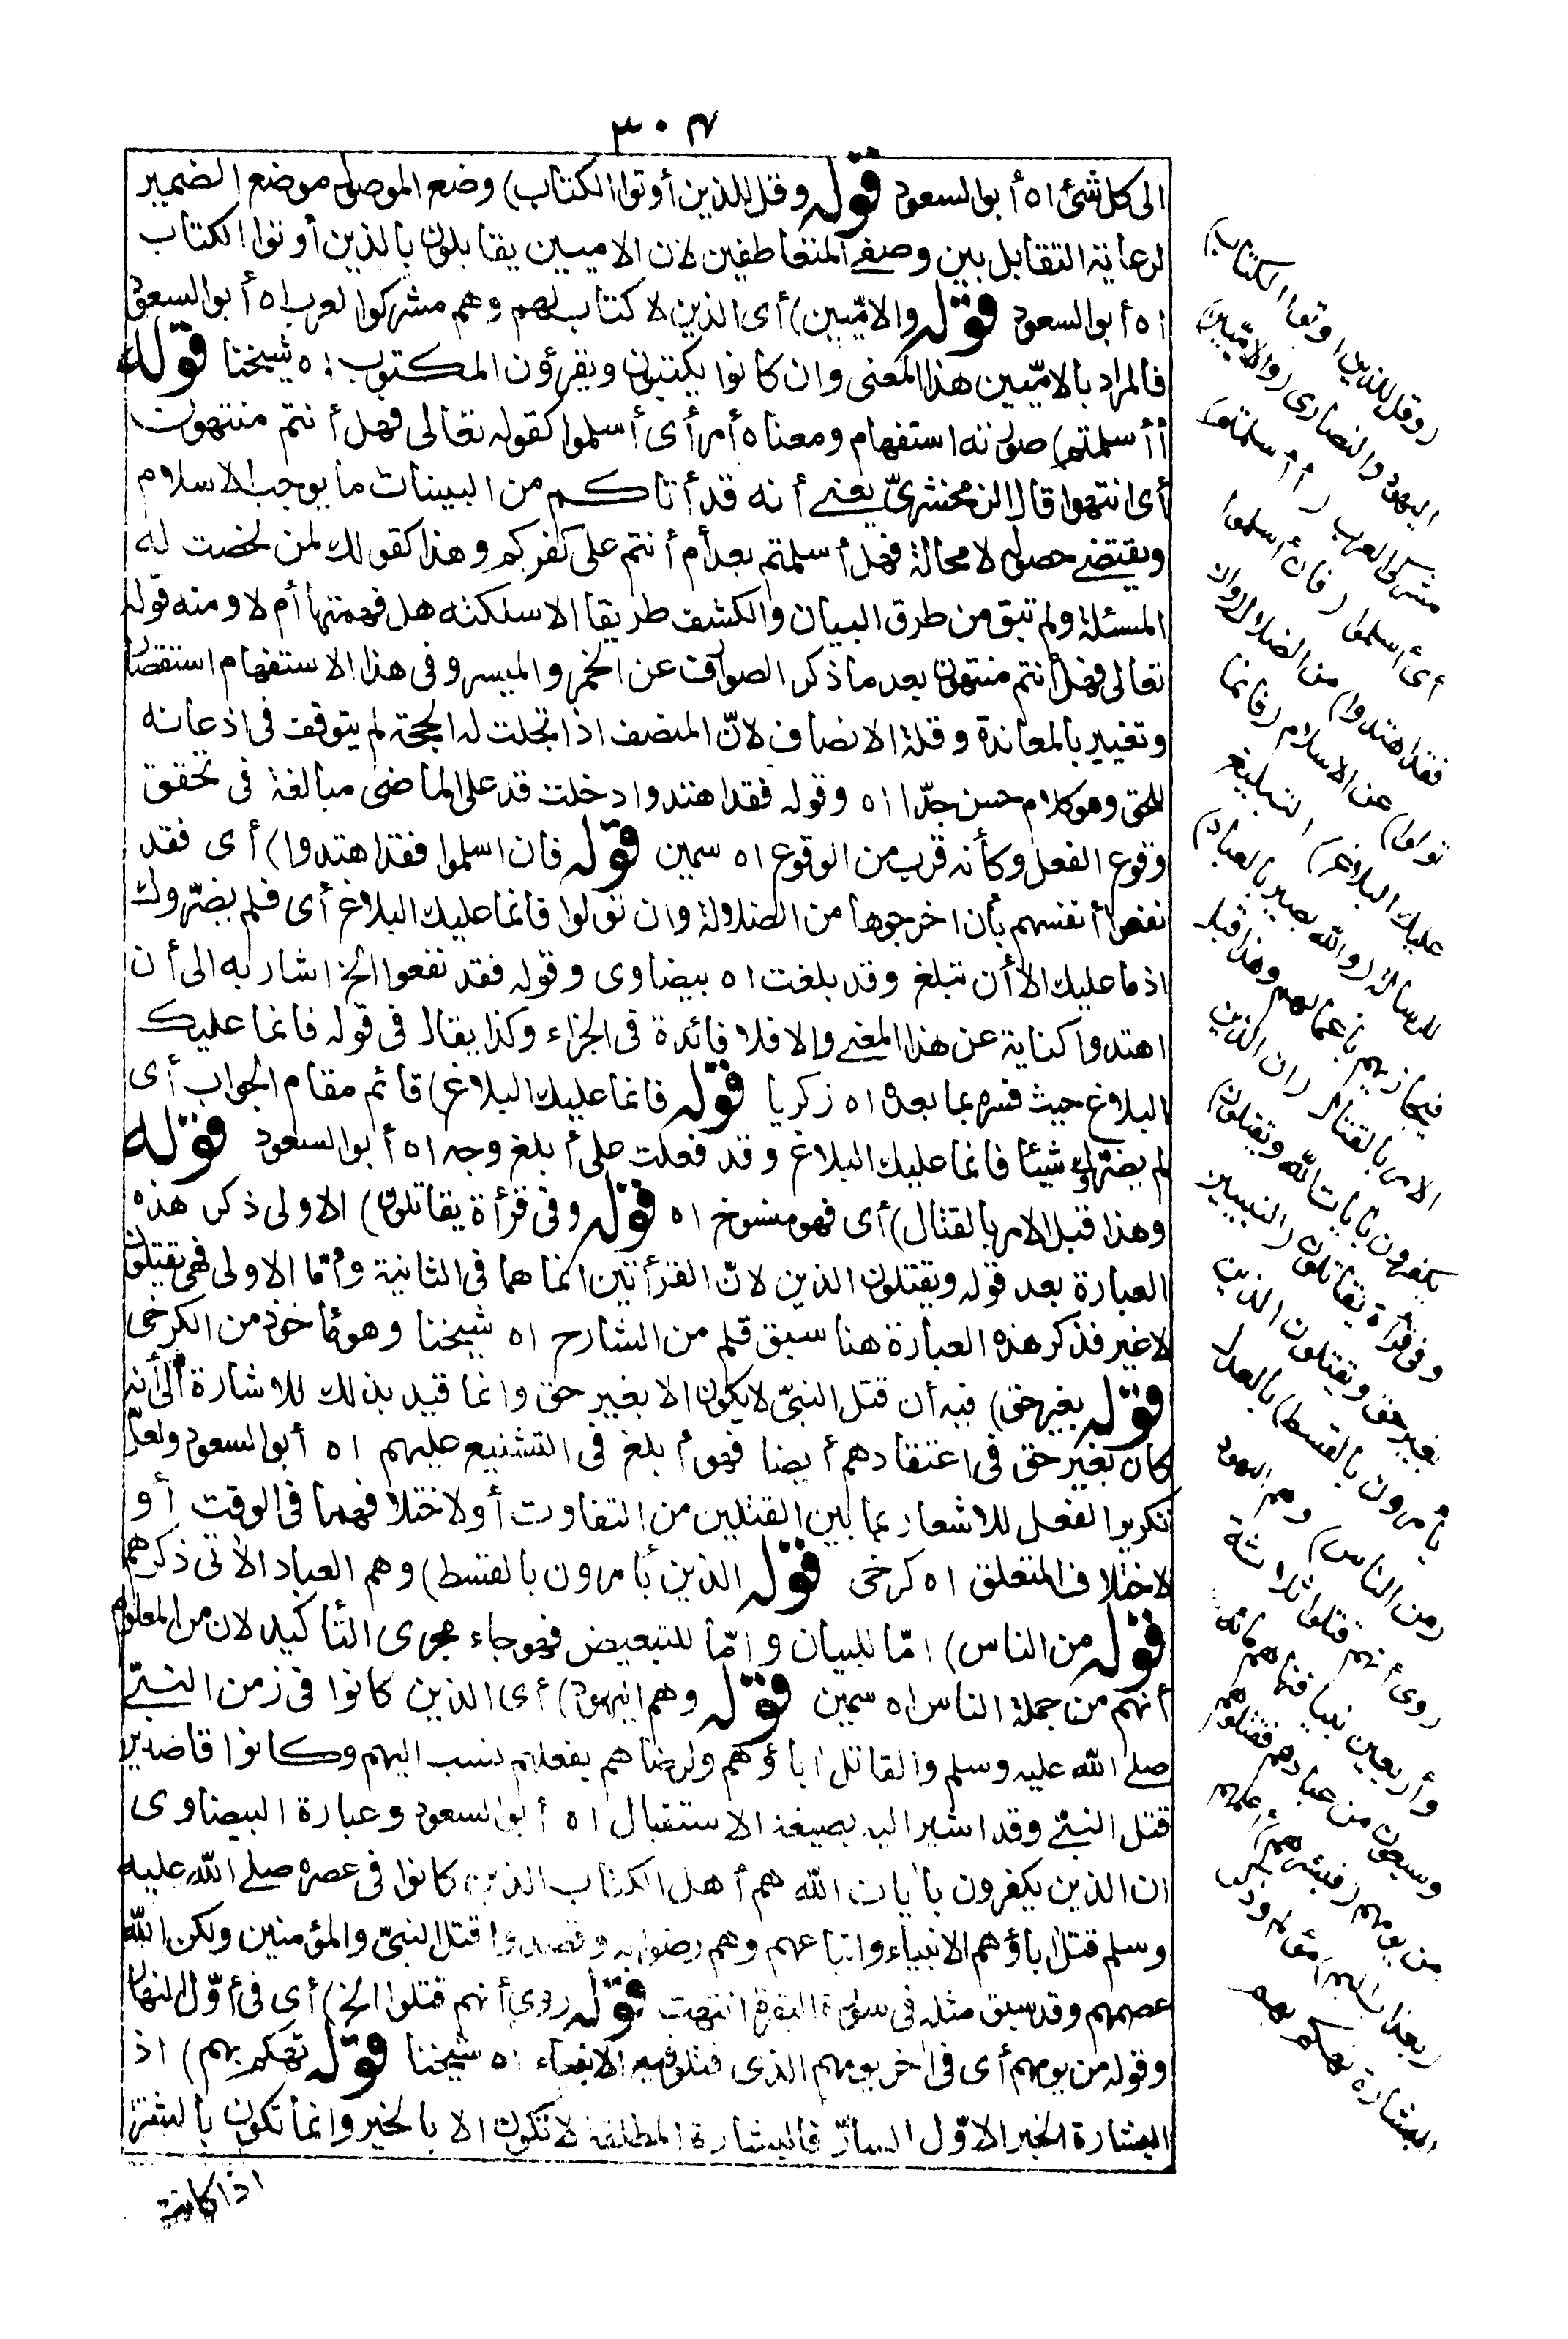 ٣٠٧
الى كل شئ اه أبو السعود قوله وقل للذين أوتوا الكتاب) وضع الموصول موضع الضمير
لرعاية التقابل بين وصفى المتعاطفين لان الاميين يقابلون بالذين أوتوا الكتاب
اه أبو السعود قوله والامّيين) أى الذين لا كتاب لهم وهم مشركوا العرب اه أبو السعود
فالمراد بالامّيين هذا المعنى وان كانوا يكتبون ويقرؤن المكتوب اه شيخنا قوله
أأسلمتم) صورته استفهام ومعناه أمر أى أسلموا كقوله تعالى فهل أنتم منتهون
أى انتهوا قال الزمخشرىّ يعنى أنه قد أتاكم من البينات ما يوجب الاسلام
ويقتضى حصوله لا محالة فهل أسلمتم بعد أم أنتم على كفركم وهذا كقولك لمن لخصت له
المسئلة ولم تبق من طرق البيان والكشف طريقا الا سلكته هل فهمتها أم لا ومنه قوله
تعالى فهل أنتم منتهون بعد ما ذكر الصوارف عن الخمر والميسر وفى هذا الاستفهام استقصار
وتعيير بالمعاندة وقلة الانصاف لانّ المنصف اذا تجلت له الحجة لم يتوقف فى اذعانه
للحق وهو كلام حسن جدّا اه وقوله فقد اهتدوا دخلت قد على الماضى مبالغة فى تحقق
وقوع الفعل وكأنه قرب من الوقوع اه سمين قوله فان اسلموا فقد اهتدوا) أى فقد
نفعوا أنفسهم بأن اخرجوها من الضلالة وان تولوا فانما عليك البلاغ أى فلم يضرّوك
اذ ما عليك الا أن تبلغ وقد بلغت اه بيضاوى وقوله فقد نفعوا الخ اشار به الى أن
اهتدوا كناية عن هذا المعنى والا فلا فائدة فى الجزاء وكذا يقال فى قوله فانما عليك
البلاغ حيث فسره بما بعده اه زكريا قوله فانما عليك البلاغ) قائم مقام الجواب أى
لم يضرّوك شيئا فانما عليك البلاغ وقد فعلت على أبلغ وجه اه أبو السعود قوله
وهذا قبل الامر بالقتال) أى فهو منسوخ اه قوله وفى قرأة يقاتلون) الاولى ذكر هذه
العبارة بعد قوله ويقتلون الذين لانّ القرأتين انما هما فى الثانية وأمّا الاولى فهى يقتلون
لا غير فذكر هذه العبارة هنا سبق قلم من الشارح اه شيخنا وهو مأخوذ من الكرخى
قوله بغير حق) فيه أن قتل النبىّ لا يكون الا بغير حق وانما قيد بذلك للاشارة الى أنه
كان بغير حق فى اعتقادهم أيضا فهو أبلغ فى التشنيع عليهم اه أبو السعود ولعلّ
تكرير الفعل للاشعار بما بين القتلين من التفاوت أو لاختلافهما فى الوقت أو
لاختلاف المتعلق اه كرخى قوله الذين يأمرون بالقسط) وهم العباد الآتى ذكرهم
قوله من الناس) امّا للبيان وامّا للتبعيض فهو جاء مجرى التأكيد لان من المعلوم
أنهم من جملة الناس اه سمين قوله وهم اليهود) أى الذين كانوا فى زمن النبىّ
صلى الله عليه وسلم والقاتل اباؤهم ولرضاهم بفعلهم نسب اليهم وكانوا قاصدين
قتل النبىّ وقد اشير اليه بصيغة الاستقبال اه أبو السعود وعبارة البيضاوى
ان الذين يكفرون بأيات الله هم أهل الكتاب الذين كانوا فى عصره صلى الله عليه
وسلم قتل اباؤهم الانبياء واتباعهم وهم رضوا به وقصدوا قتل النبىّ والمؤمنين ولكن الله
عصمهم وقد سبق مثله فى سورة البقرة انتهت قوله روى أنهم قتلوا الخ) أى فى أوّل النهار
وقوله من يومهم أى فى اخر يومهم الذى قتلوا فيه الانبياء اه شيخنا قوله تهكم بهم) اذ
البشارة الخبر الاوّل السارّ فالبشارة المطلقة لا تكون الا بالخير وانما تكون بالشر
اذا كانت
(وقل للذين اوتوا الكتاب)
اليهود والنصارى (والامّيين)
مشركى العرب (أأسلمتم)
أى أسلموا (فان أسلموا
فقد اهتدوا) من الضلال (وان
تولوا) عن الاسلام (فانما
عليك البلاغ) التبليغ
للرسالة (والله بصير بالعباد)
فيجازيهم باعمالهم وهذا قبل
الامر بالقتال (ان الذين
يكفرون بأيات الله ويقتلون)
وفى قرأة يقاتلون (النبيين
بغير حق ويقتلون الذين
يأمرون بالقسط) بالعدل
(من الناس) وهم اليهود
روى أنهم قتلوا ثلاثة
وأربعين نبيا فنهاهم مائة
وسبعون من عبادهم فقتلوهم
من يومهم (فبشرهم) أعلمهم
(بعذاب أليم) مؤلم وذكر
البشارة تهكم بهم